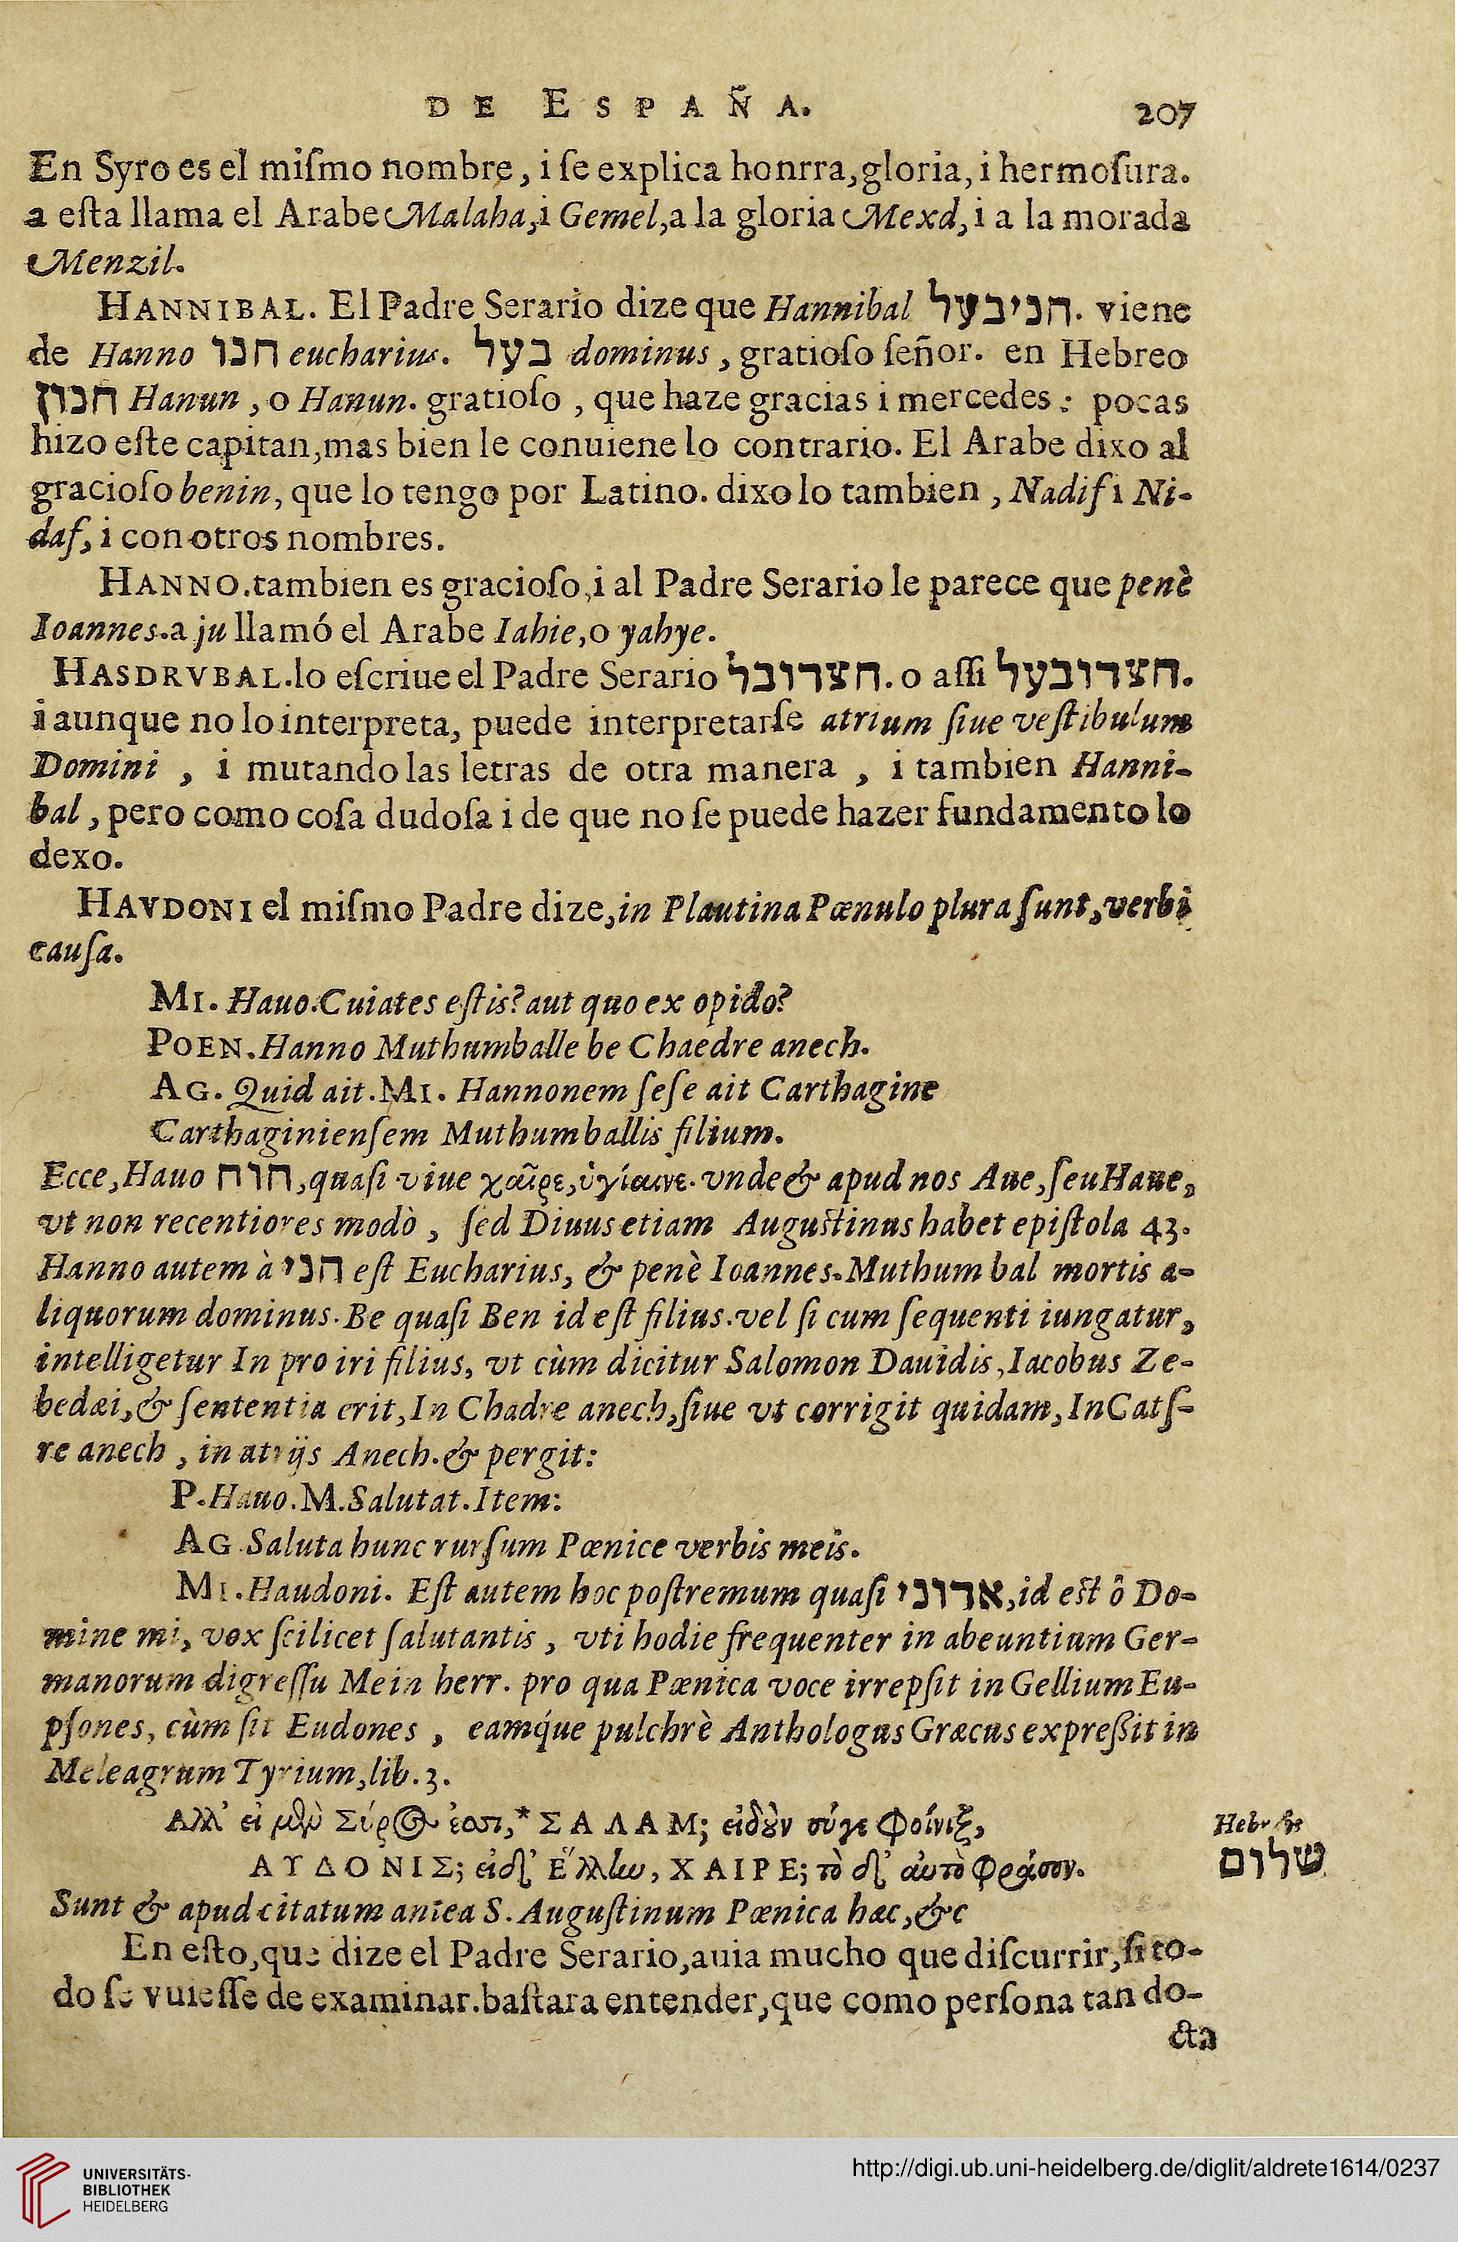 DE ESPAÑA. 207
En Syro es el miſmo nombre, i ſe explica honrra, gloria, i hermoſura.
a eſta llama el Arabe Malaha, i Gemel, a la gloria Mexd, i a la morada
Menzil.
HANNIBAL. El Padre Serario dize que Hannibal חניבעל. viene
de Hanno חנו eucharius. בעל dominus, gratioſo ſeñor. en Hebreo
חנון Hanun, o Hanun. gratioſo, que haze gracias i mercedes: pocas
hizo eſte capitan, mas bien le conuiene lo contrario. El Arabe dixo al
gracioſo benin, que lo tengo por Latino. dixolo tambien, Nadif i Ni-
daf, i con otros nombres.
HANNO. tambien es gracioſo, i al Padre Serario le parece que penè
Ioannes. a ju llamó el Arabe Iahie, o yahye.
HASDRVBAL. lo eſcriue el Padre Serario חצדרובל. o aſſi חצדרובעל.
i aunque no lo interpreta, puede interpretarſe atrium ſiue veſtibulum
Domini, i mutando las letras de otra manera, i tambien Hanni-
bal, pero como coſa dudoſa i de que no ſe puede hazer fundamento lo
dexo.
HAVDONI el miſmo Padre dize, in Plautina Pœnulo plura ſunt, verbi
cauſa.
MI. Hauo. Cuiates eſtis? aut quo ex opido?
POEN. Hanno Muthumballe be Chaedre anech.
AG. Quid ait. MI. Hannonem ſeſe ait Carthagine
Carthaginienſem Muthumballis filium.
Ecce, Hauo חוח, quaſi viue χαῖρε, ὑγίαινε. vnde & apud nos Aue, ſeu Haue,
vt non recentiores modò, ſed Diuus etiam Auguſtinus habet epiſtola 43.
Hanno autem à חני eſt Eucharius, & penè Ioannes. Muthum bal mortis a-
liquorum dominus. Be quaſi Ben id eſt filius. vel ſi cum ſequenti iungatur,
intelligetur In pro iri filius, vt cùm dicitur Salomon Dauidis, Iacobus Ze-
bedæi, & ſententia erit, In Chadre anech, ſiue vt corrigit quidam, In Catſ-
re anech, in atrijs Anech. & pergit:
P. Hauo. M. Salutat. Item:
AG. Saluta hunc rurſum Pœnice verbis meis.
MI. Haudoni. Eſt autem hoc poſtremum quaſi אדוני, id eſt ô Do-
mine mi, vox ſcilicet ſalutantis, vti hodie frequenter in abeuntium Ger-
manorum digreſſu Mein herr. pro qua Pœnica voce irrepſit in Gellium Eu-
pſones, cùm ſit Eudones, eamq́ue pulchrè Anthologus Græcus expreßit in
Meleagrum Tyrium, lib. 3.
Αλλ’ εἰ μὲν Σύρος ἐσσι, * ΣΑΛΑΜ; εἰδ’ οὖν σύγε Φοίνιξ,
ΑΥΔΟΝΙΣ; εἰδ’ Ἕλλω, ΧΑΙΡΕ; τὸ δ’ αὐτὸ Φράσον.
Hebræis
שלום
Sunt & apud citatum antea S. Auguſtinum Pœnica hæc, &c
En eſto, que dize el Padre Serario, auia mucho que diſcurrir, ſi to-
do ſe vuieſſe de examinar. baſtara entender, que como perſona tan do-
cta
UNIVERSITÄTS-
BIBLIOTHEK
HEIDELBERG
http://digi.ub.uni-heidelberg.de/diglit/aldrete1614/0237